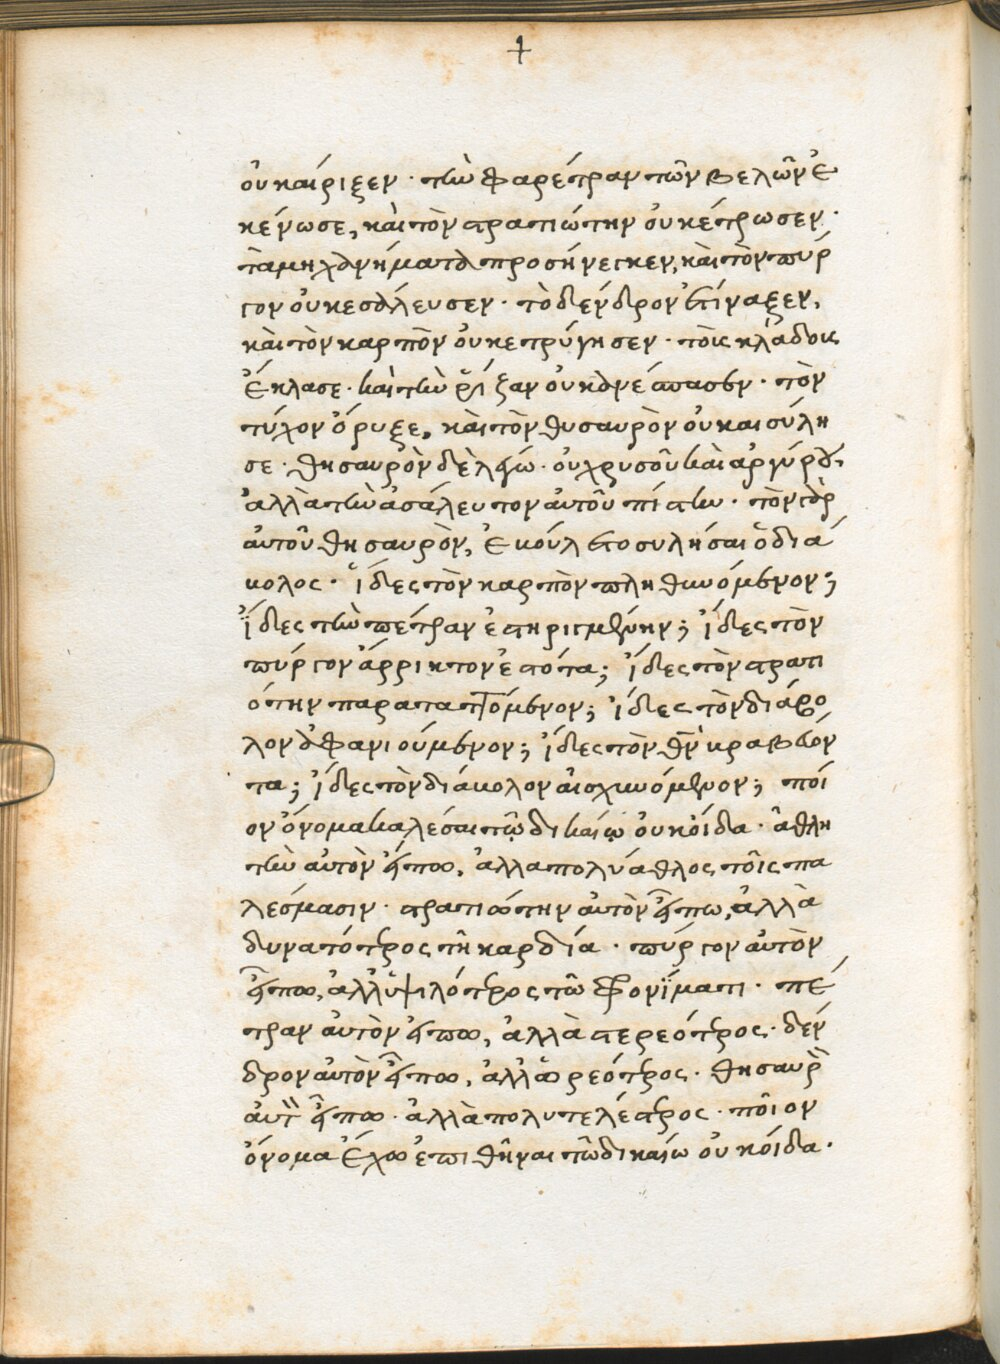 οὐκαίριξεν · τὴν φαρέτραν τῶν βελῶν ἐ
κένωσε, καὶ τὸν στρατιώτην οὐκ ἔτρωσεν ·
τὰ μηχανήματα προσήνεγκεν, καὶ τὸν πύρ
γον οὐκ ἐσάλευσεν · τὸ δένδρον ἐτίναξεν,
καὶ τὸν καρπὸν οὐκ ἐτρύγησεν · τοὶς κλάδοις
ἔκλασε · καὶ τὴν ῥίζαν οὐκ ἀνέσπασεν · τὸν
τύχον ὄρυξε, καὶ τὸν θυσαυρὸν οὐκ αισύλη
σε · θησαυρὸν δὲ λέγω · οὐ χρυσοῦ καὶ αργύρου,
ἀλλὰ τὴν ἀσάλευτον αὐτοῦ πίστιν · τὸν γὰρ
αὐτοῦ θησαυρὸν, ἐβούλετο συλῆσαι ὁ διά
βολος · ἴδες τὸν καρπὸν πληθυνόμενον;
ἴδες τὴν πέτραν ἐστηριγμένην; ἴδες τὸν
πύργον ἄρρικτον ἑστότα; ἴδες τὸν στρατι
ότην παραταττόμενον; ἴδες τὸν διάβο
λον ἀφανιούμενον; ἴδες τὸν θν κραββόν
τα; ἴδες τὸν διάβολον αἰσχυνόμενον; ποί
ον ὄνομα καλέσαι τῷ δικαίῳ οὐκ οἶδα · ἀθλη
τὴν αὐτὸν εἴπω, ἀλλα πολύαθλος τοῖς πα
λέσμασιν · στρατιώτην αὐτὸν εἴπω, ἀλλὰ
δυνατότερος τῆ καρδία · πύργον αὐτὸν
εἴπω, ἀλλ' ὑψιλότερος τῶ φρονίματι · πέ
τραν αὐτὸν εἴπω, ἀλλὰ στερεότερος · δέν
δρον αὐτὸν εἴπω, ἀλλ' ὡρεότερος · θησαυρὸν
αὐτὸν εἴπω · ἀλλὰ πολυτελέστερος · ποῖον
ὄνομα ἔχω ἐπιθῆναι τῶ δικαίω οὐκ οἶδα ·